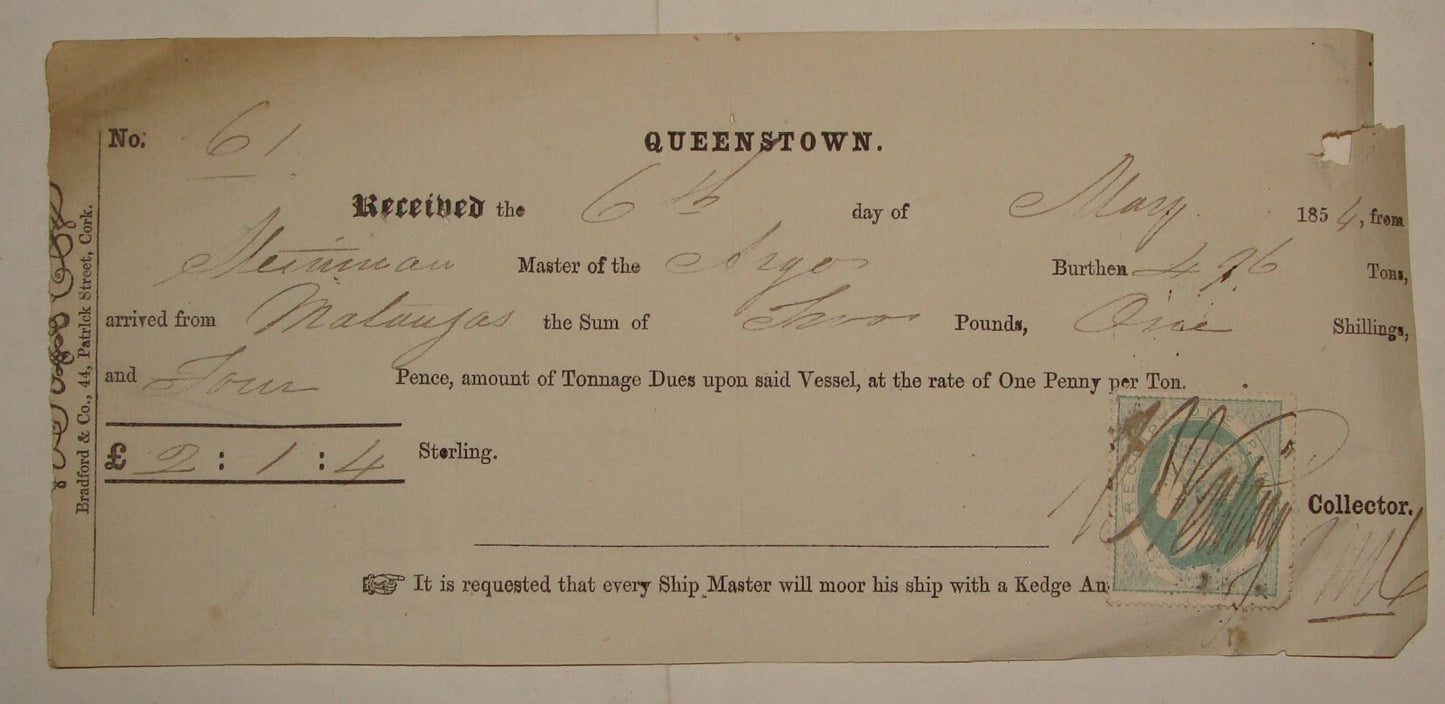 No. 61
QUEENSTOWN.
Received the 6th day of May 1854, from
Steinman Master of the Argo Burthen 496 Tons,
arrived from Matanzas the Sum of Two Pounds, One Shillings,
and Four Pence, amount of Tonnage Dues upon said Vessel, at the rate of One Penny per Ton.
£ 2 : 1 : 4 Sterling.
Collector.
☞ It is requested that every Ship Master will moor his ship with a Kedge An
Bradford & Co., 44, Patrick Street, Cork.